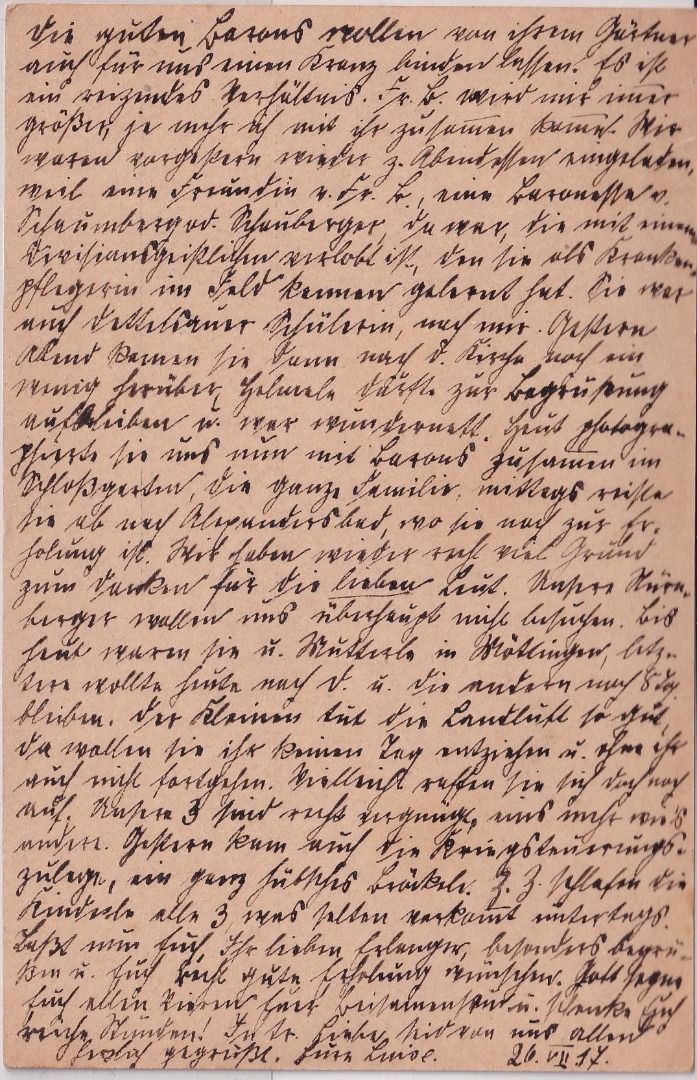 die guten Barons wollen von ihrem Gärtner
auch für uns einen Kranz binden lassen. Es ist
ein reizendes Verhältnis. Fr. B. wird mir immer
größer, je mehr ich mit ihr zusammen komme. Wir
waren vorgestern wieder z. Abendessen eingeladen,
weil eine Freundin v. Fr. B., eine Baronesse v.
Schaumberg od. Schauberger, da war, die mit einem
Divisionsgeistlichen verlobt ist, den sie als Kranken-
pflegerin im Feld kennen gelernt hat. Sie war
auch Dettelsauer Schülerin, nach mir. Gestern
Abend kamen sie dann nach d. Kirche noch ein
wenig herüber, Helmele durfte zur Begrüßung
aufbleiben u. war wundernett. Heut photogra-
phierte sie uns nun mit Barons zusammen im
Schloßgarten, die ganze Familie, mittags reiste
sie ab nach Alexandersbad, wo sie noch zur Er-
holung ist. Wir haben wieder recht viel Grund
zum Danken für die lieben Leut. Unsere Nürn-
berger wollen uns überhaupt nicht besuchen. Bis
heut waren sie u. Mutterle in Möttingen, letz-
tere wollte heute nach D. u. die andern noch 8 Tg.
bleiben. Der Kleinen tut die Landluft so gut,
da wollen sie ihr keinen Tag entziehen u. ohne ihr
auch nicht fortgehen. Vielleicht raffen sie sich doch noch
auf. Unsere 3 sind recht vergnügt, eins mehr wie's
andere. Gestern kam auch die Kriegsteuerungs-
zulage, ein ganz hübsches Bröckele. Z. Z. schlafen die
Kinderle alle 3 was selten vorkommt untertags.
Laßt nun Euch, Ihr lieben Erlanger, besonders begrü-
ßen u. Euch recht gute Erholung wünschen. Gott segne
Euch allen Vieren Euer Beisammensein u. schenke Euch
reiche Stunden! In tr. Liebe seid von uns allen
herzlich gegrüßt. Eure Luise. 26. VII 17.